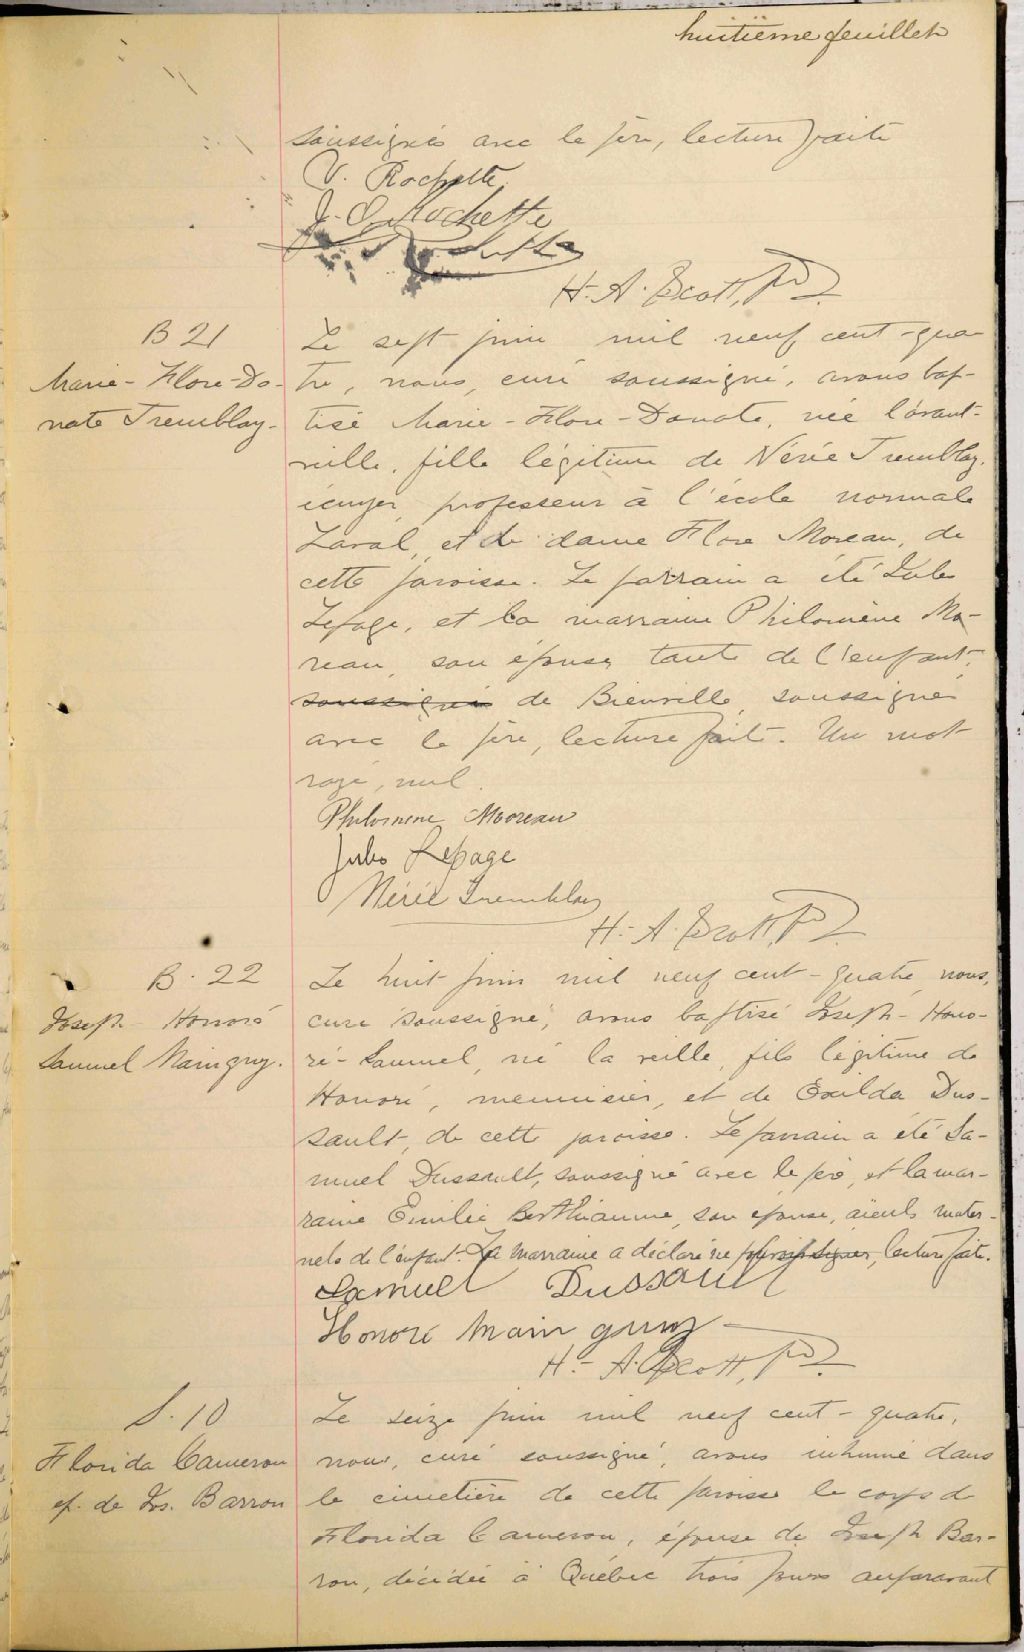 huitième feuillet
soussignés avec le père, lecture faite
V. Rochette
J. O. Rochette
H.-A. Scott, Ptre
B 21
Marie-Flore-Do-
nate Tremblay.
Le sept juin mil neuf cent-qua-
tre, nous, curé soussigné, avons bap-
tisé Marie-Flore-Donate, née l'avant-
veille, fille légitime de Nérée Tremblay,
écuyer, professeur à l'école normale
Laval, et de dame Flore Moreau, de
cette paroisse. Le parrain a été Jules
Lepage, et la marraine Philomène Mo-
reau, son épouse, tante de l'enfant,
soussignés de Bienville, soussignés
avec le père, lecture faite. Un mot
rayé, nul.
Philomene Mooreau
Jules Lepage
Nérée Tremblay
H.-A. Scott, Ptre
B. 22
Joseph-Honoré
Samuel Mainguy.
Le huit juin mil neuf cent-quatre, nous,
curé soussigné, avons baptisé Joseph-Hono-
ré-Samuel, né la veille, fils légitime de
Honoré, menuisier, et de Exilda Dus-
sault, de cette paroisse. Le parrain a été Sa-
muel Dussault, soussigné avec le père, et la mar-
raine Emilie Berthiaume, son épouse, aïeuls mater-
nels de l'enfant. La marraine a déclaré ne signer, lecture faite.
Samuel Dussault
Honoré Mainguy
H.-A. Scott, Ptre
S. 10
Florida Cameron
ép. de Jos. Barron
Le seize juin mil neuf cent-quatre,
nous, curé soussigné, avons inhumé dans
le cimetière de cette paroisse le corps de
Florida Cameron, épouse de Joseph Bar-
ron, décédée à Québec trois jours auparavant